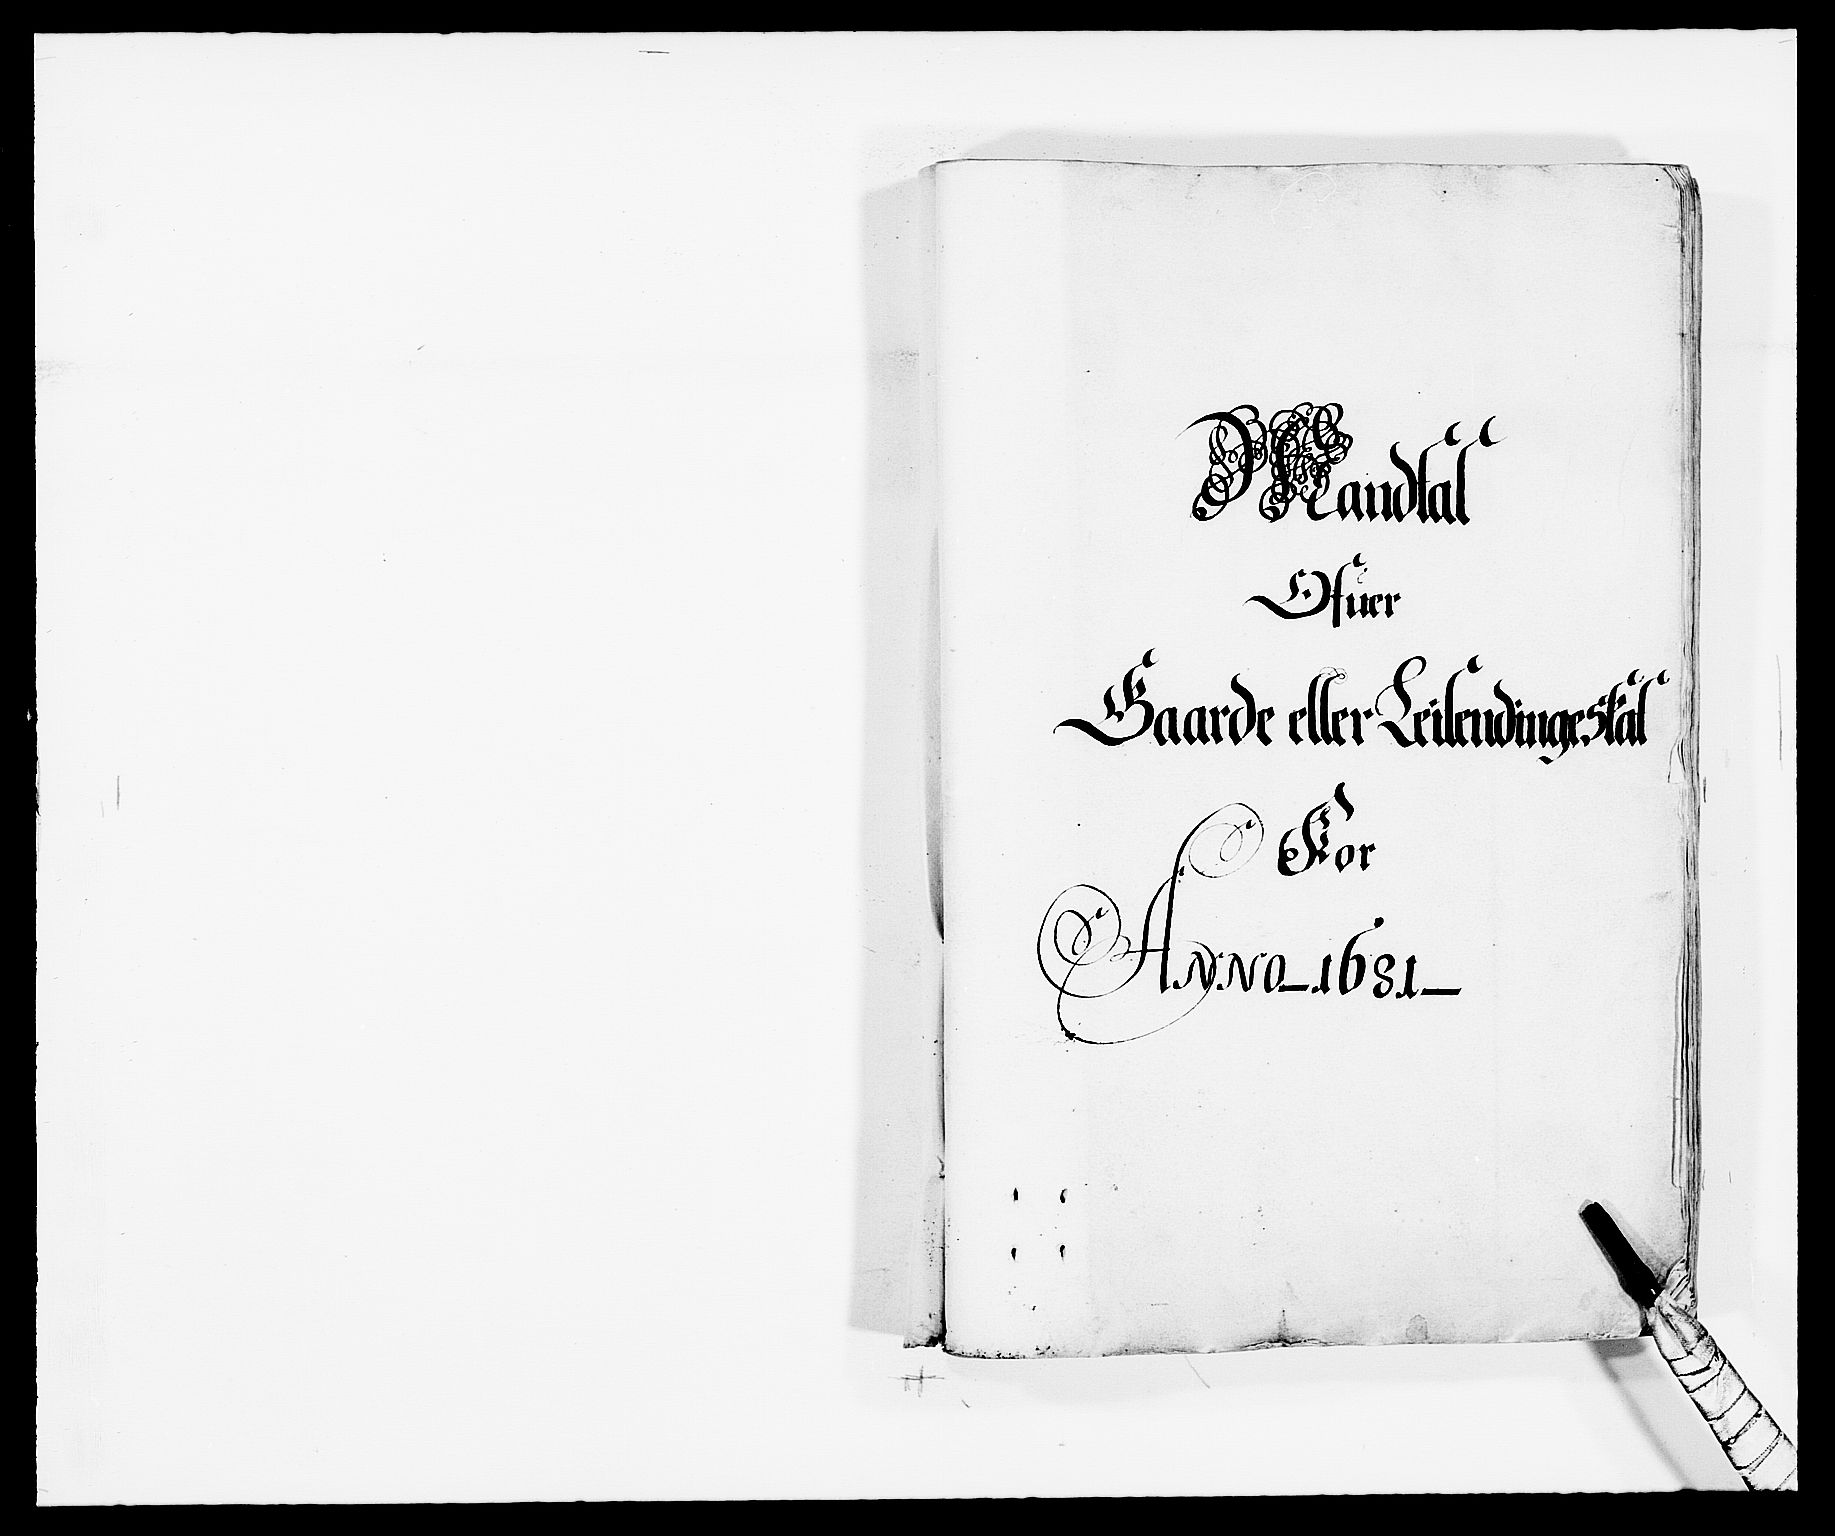 Mandtal
Ofuer
Gaarde eller Leilendingestal
For
Anno 1681